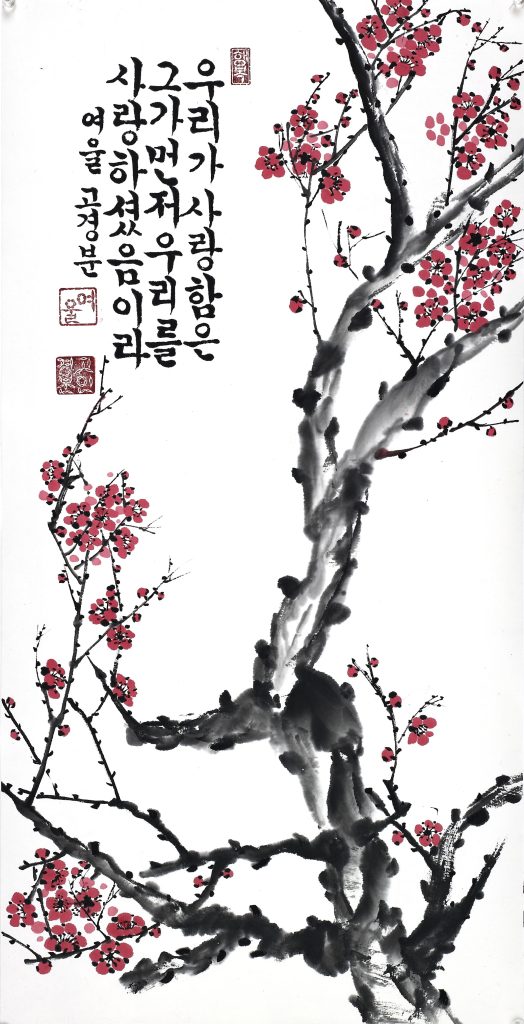 우리가 사랑함은
그가 먼저 우리를
사랑하셨음이라
여울 고경분
여울